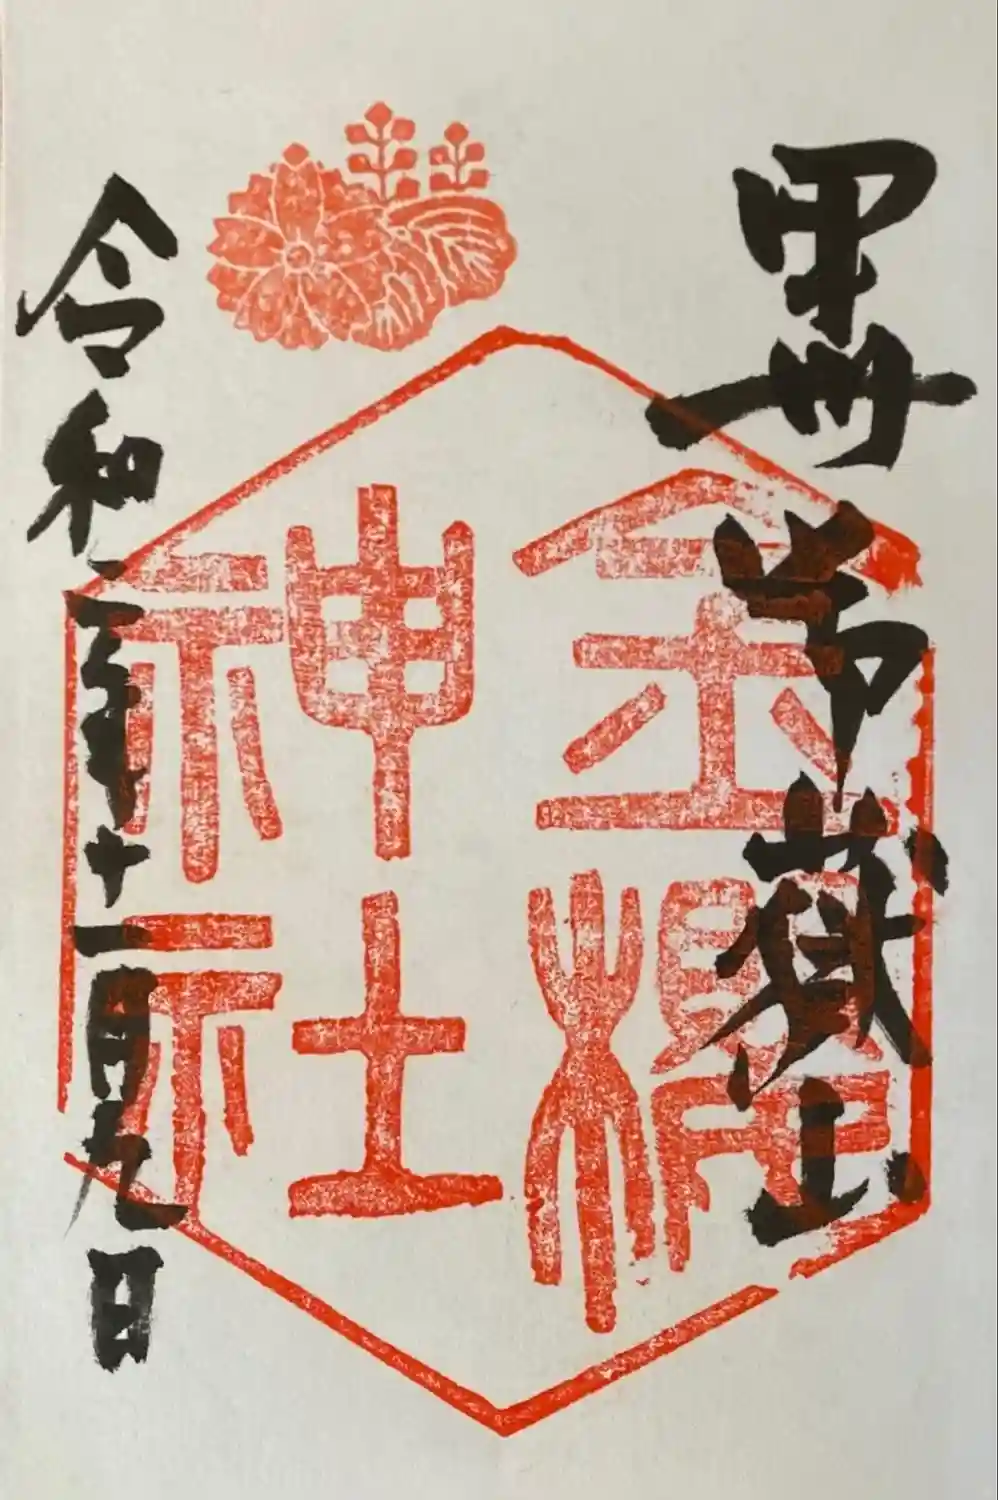 甲州御嶽山
金櫻神社
令和三年十一月九日